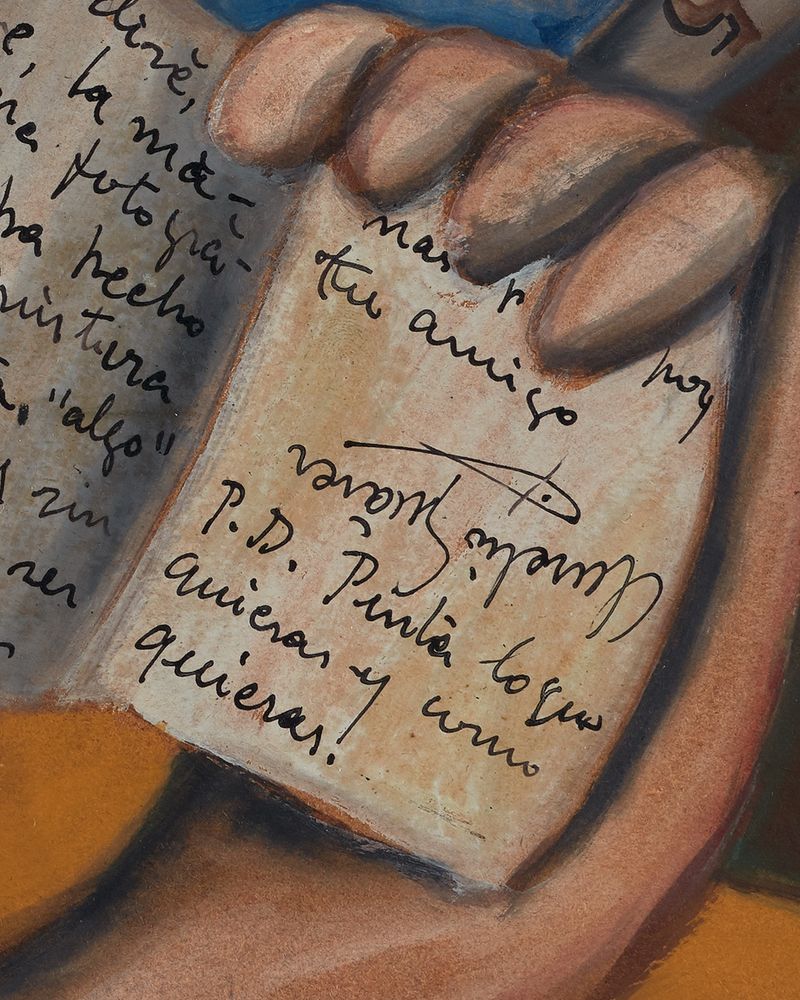 diré,
la má-
fotográ-
ha hecho
pintura
"algo"
sin
ser
nas
hoy
tu amigo
Aurelio Suarez
P.D. Pinta lo que
quieras y como
quieras!